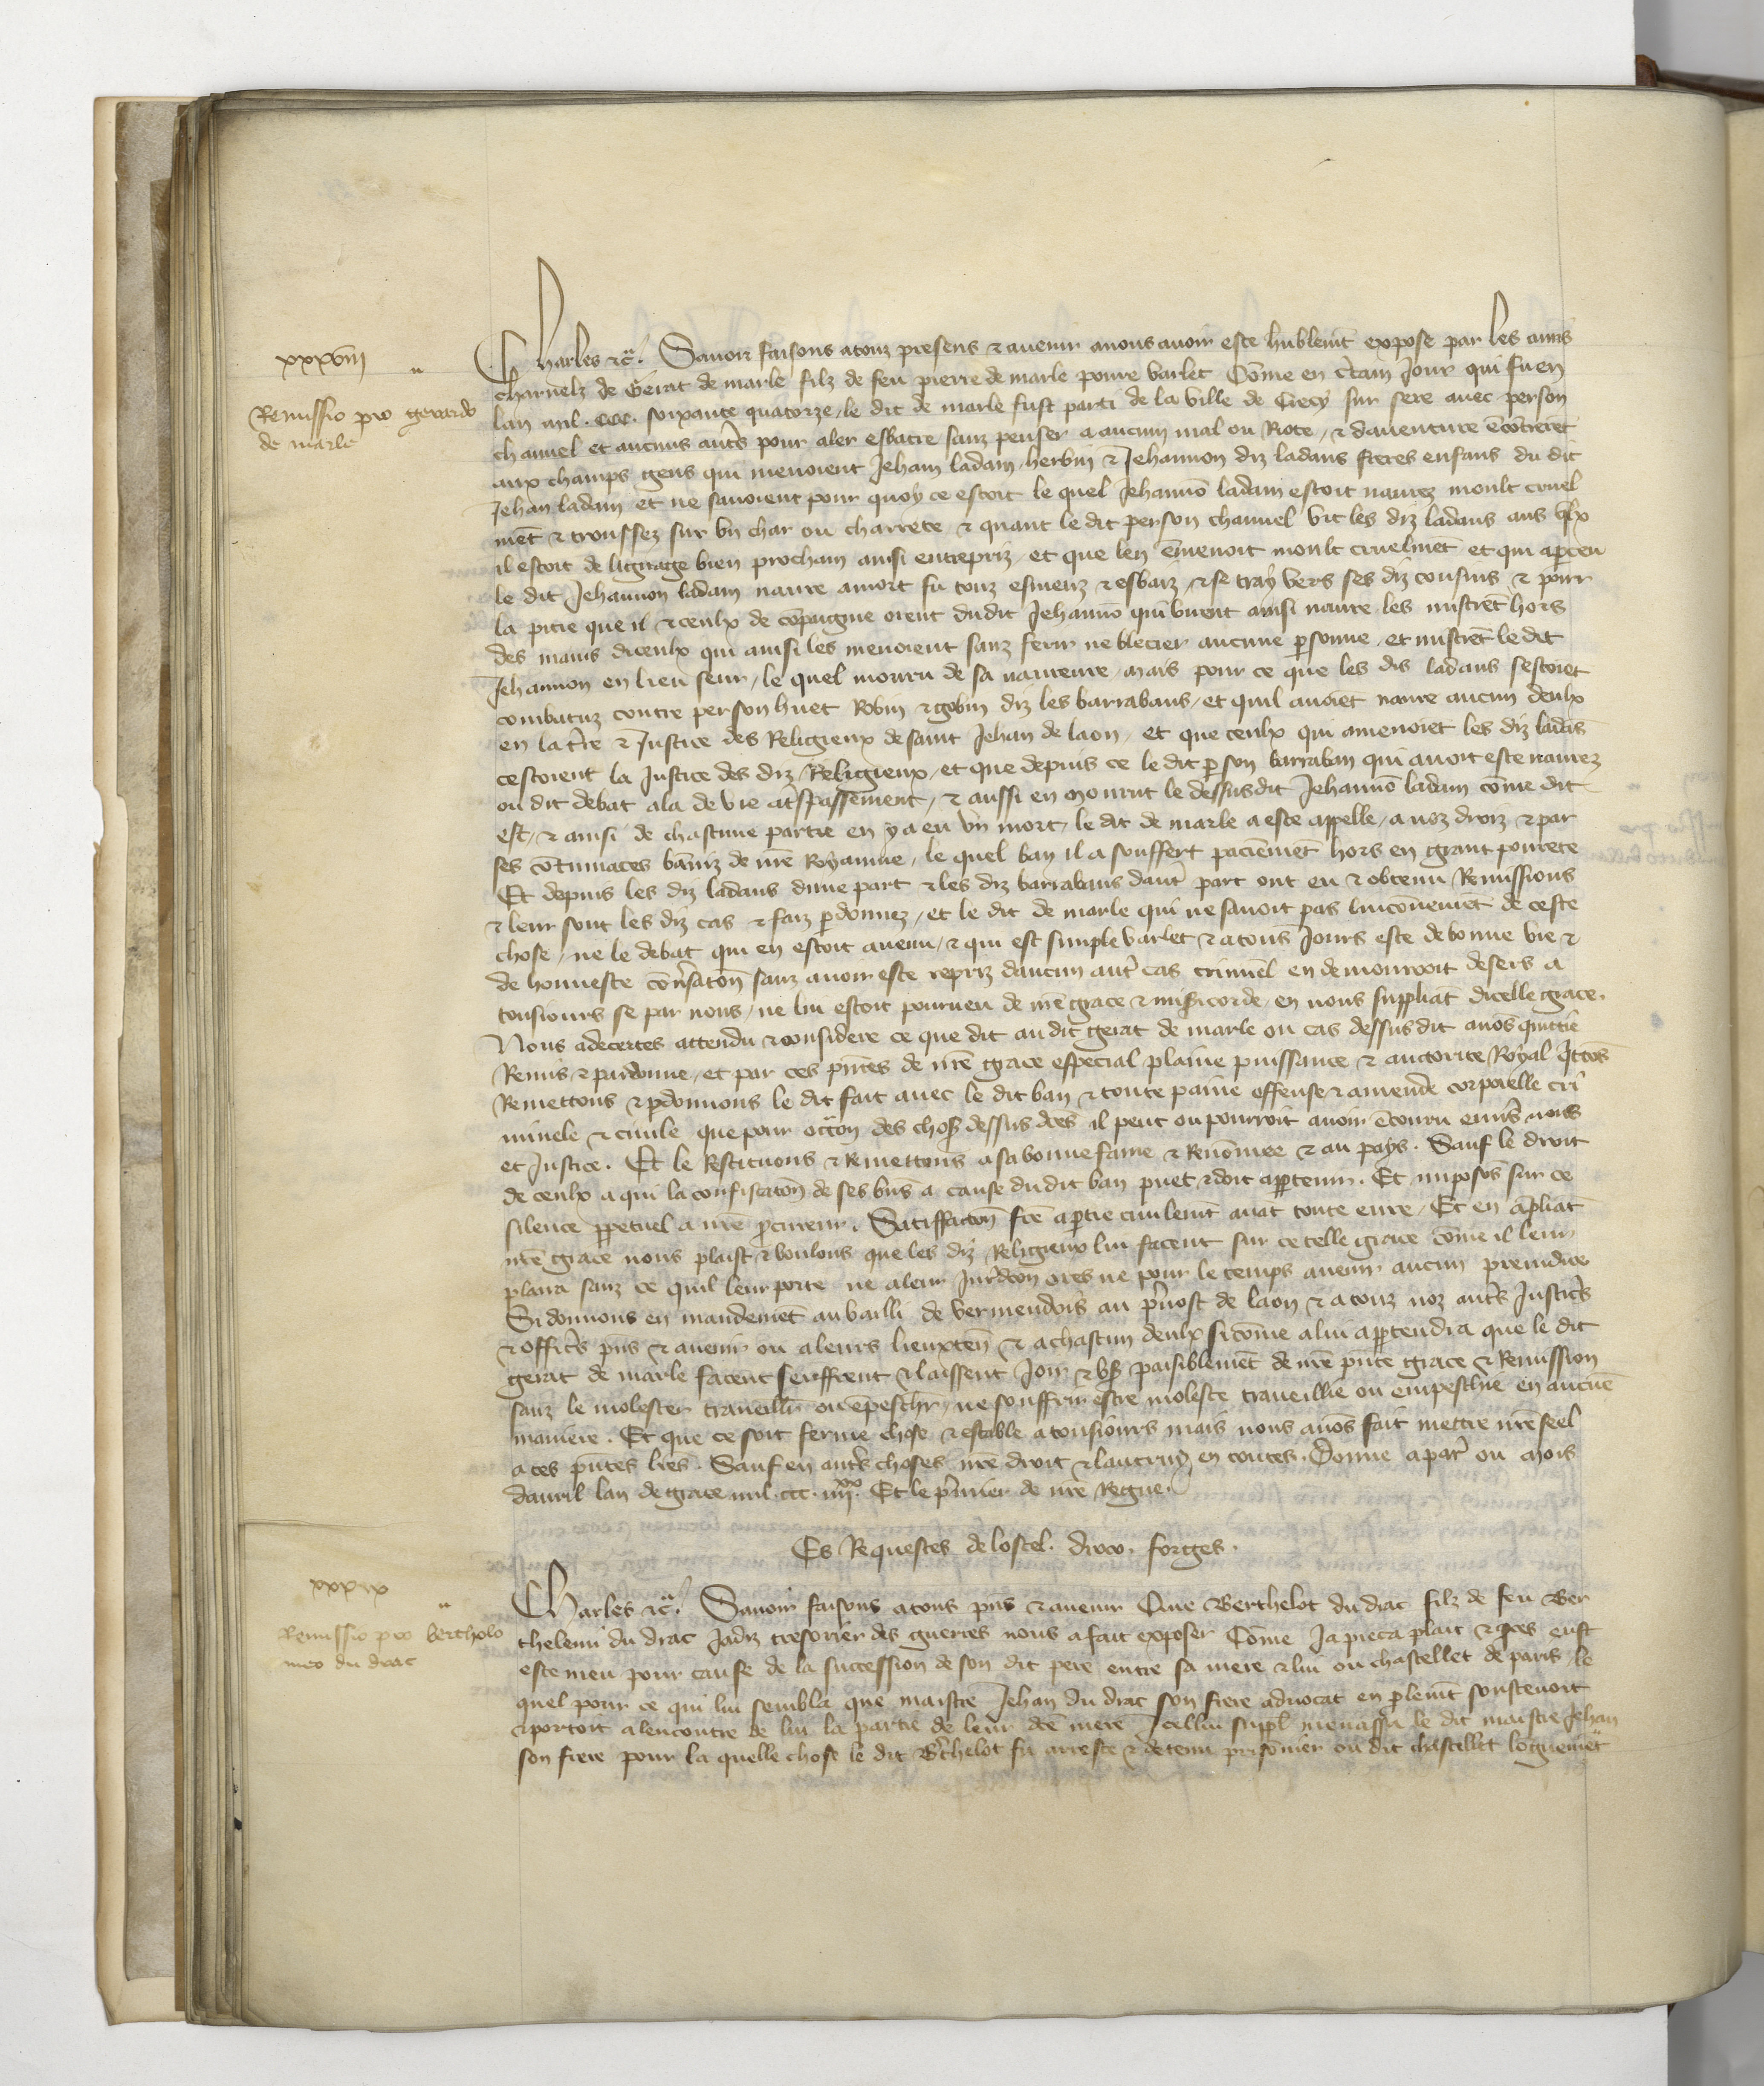 xxxviii
Remissio pro gerardo
de marle
Charles &c̃. Sauoir faisons a touz presens & auenir a nous auoir este hũblemt̃ expose par les amis
charnelz de Gerat de marle filz de feu pierre de marle poure varlet Cõme en c̃tain Jour qui fu en
lan mil. ccc. soixante quatorze, le dit de marle fust parti de la ville de Crecy sur sere auec person
chauuel et aucuns autr̃s pour aler esbatre sanz penser a aucun mal ou Riote, & dauenture ẽcõtrerẽt
aux champs gens qui menoient Jehan ladam, herbin & Jehannon diz ladans freres enfans du dit
Jehan ladam et ne sauoient pour quoy ce estoit le quel Jehannõ ladam estoit naurez moult cruel
mẽt & troussez sur vn char ou charrete & quant le dit person chauuel vit les diz ladans aus q̃lx
il estoit de lignage bien prochain ainsi entrepriz, et que len ẽmenoit moult cruelmẽt et qui ap̃ceu
le dit Jehannon ladam naure a mort fu touz esmeuz & esbaiz, & se tray vers ses diz cousins & pour
la pitie que il & ceulx de cõpaignie orent dudit Jehannõ qui virent ainsi naure les mistrẽt hors
des mains diceulx qui ainsi les menoient sanz ferir ne blecier aucune p̃sonne, et mistrẽt le dit
Jehannon en lieu seur, le quel mouru de sa naureure, mais pour ce que les dis ladans sestoiẽt
combatuz contre person huet Robin & gobin diz les barrabans, et quil auoiẽt naure aucun deulx
en la tr̃re & Justice des Religieux de saint Jehan de laon, et que ceulx qui amenoiẽt les diz ladãs
cestoient la Justice des diz Religieux, et que depuis ce le dit p̃son barraban qui auoit este naurez
ou dit debat ala de vie a tr̃spassement, & aussi en mourut le dessusdit Jehannõ ladam cõme dit
est, & ainsi de chascune partie en y a eu vn mort, le dit de marle a este appelle, a noz droiz & par
ses cõtumaces baniz de nr̃e Royaume, le quel ban il a souffert paciẽmẽt hors en grant pourete
Et depuis les diz ladans dune part & les diz barrabans dautr̃ part ont eu & obtenu Remissions
& leur sont les diz cas & faiz p̃donnez, et le dit de marle qui ne sauoit pas lincõueniẽt de ceste
chose, ne le debat qui en estoit auenu, & qui est simple varlet & a tous Jours este de bonne vie &
de honneste cõu̾saton̄ sanz auoir este repriz daucun autr̃ cas criminel en demourroit desers a
tousiours se par nous, ne lui estoit pourueu de nr̃e grace & mis̃icorde, en nous suppliãt dicelle grace.
Nous adecertes attendu & considere ce que dit au dit gerat de marle ou cas dessusdit auõs quittie
Remis & pardonne, et par ces p̃ntes de nr̃e grace especial plaine puissance & auctorite Royal q̃ttõs
Remettons & p̃donnons le dit fait auec le dit ban & toute paine offense & amende corporelle cri
minele & ciuile que pour occ̃on des chos̃ dessus dc̃es il peut ou pourroit auoir ẽcouru enuer̃s nous
et Justice. Et le Restituons & Remettons a sa bonne fame & Renõmee & au pays. Sauf le droit
de ceulx a qui la confiscaton̄ de ses bñs a cause du dit ban puet & doit app̃tenir. Et imposõs sur ce
silence pp̃etuel a nr̃e p̃cureur. Satiffacton̄ fc̃e a p̃tie ciuilemt̃ auãt toute euure, Et en ãpliãt
nr̃e grace nous plaist & voulons que les diz Religieux lui facent sur ce telle grace cõme il leur
plaira sanz ce quil leur porte ne a leur Jur̃dic̃on ores ne pour le temps auenir aucun preiudice
Si donnons en mandemẽt au bailli de vermendois au p̃uost de laon & a touz noz autr̃s Justicr̃s
& officr̃s p̃ns & auenir ou a leurs lieuxteñ & a chascun deulx si cõme a lui app̃tendra que le dit
gerat de marle facent seuffrent & laissent Joir & vs̃ paisiblemẽt de nr̃e p̃nte grace & Remission
sanz le molester traueillr̃ ou ẽpeschr̃, ne souffrir estre moleste traueillie ou empeschie en aucũe
maniere. Et que ce soit ferme chose & estable a tousiours mais nous auõs fait mettre nr̃e seel
a ces p̃ntes lr̃es. Sauf en autr̃s choses nr̃e droit & lautruy en toutes. Donne a par̃ ou mois
dauril lan de grace mil. ccc. iiiixx. Et le p̃mier de nr̃e Regne.
Es Requestes de lostel. droco. forges.
xxxix
Remissio pro bertholo
meo du drac
Charles &c̃. Sauoir faisons a tous p̃ns & auenir Que Berthelot du drac filz de feu Ber
thelemi du drac Jadiz tresorier des guerres nous a fait exposer Cõme Ja pieca plait & p̃ces eust
este meu pour cause de la succession de son dit pere entre sa mere & lui ou chastellet de paris, le
quel pour ce qui lui sembla que maistre Jehan du drac son frere aduocat en p̃lemt̃ soustenoit
& portoit a lencontre de lui la partie de leur dc̃e mere Jcellui suppl̃ menassa le dit maistre Jehan
son frere pour la quelle chose le dit B̃thelot fu arreste & detenu prisõnier ou dit chastellet lõguemẽt